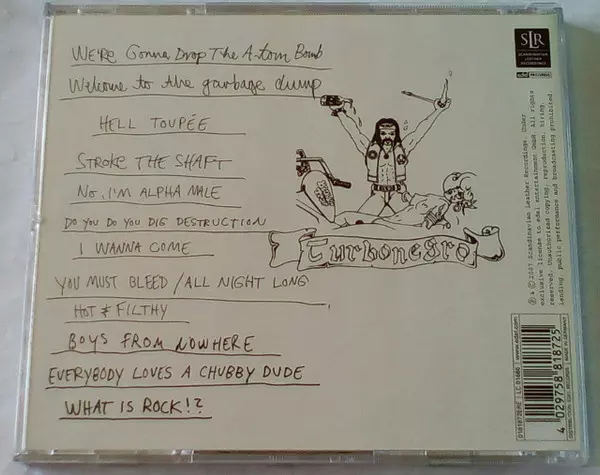 We're Gonna Drop The A-tom Bomb
Welcome to the garbage dump
HELL TOUPÉE
STROKE THE SHAFT
No, I'M ALPHA MALE
DO YOU DO YOU DIG DESTRUCTION
I WANNA COME
YOU MUST BLEED / ALL NIGHT LONG
HOT & FILTHY
BOYS FROM NOWHERE
EVERYBODY LOVES A CHUBBY DUDE
WHAT IS ROCK!?
Turbonegro
SLR
SCANDINAVIAN
LEATHER
RECORDINGS
edel RECORDS
℗ & © 2007 Scandinavian Leather Recordings. Under
exclusive license to edel entertainment GmbH. All rights
reserved. Unauthorised copying, reproduction, hiring,
lending, public performance and broadcasting prohibited.
LC 01666 | www.edel.com
4 029758 818725
MADE IN GERMANY